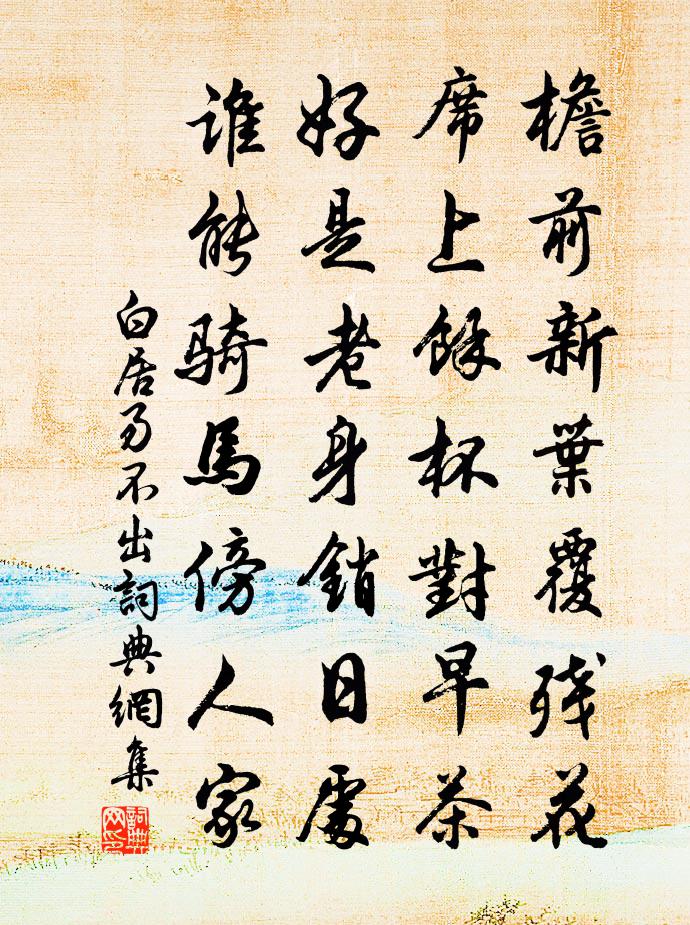 檐前新葉覆残花
席上餘杯對早茶
好是老身銷日處
谁能骑馬傍人家
白居易不出詞典網集
詞典网印